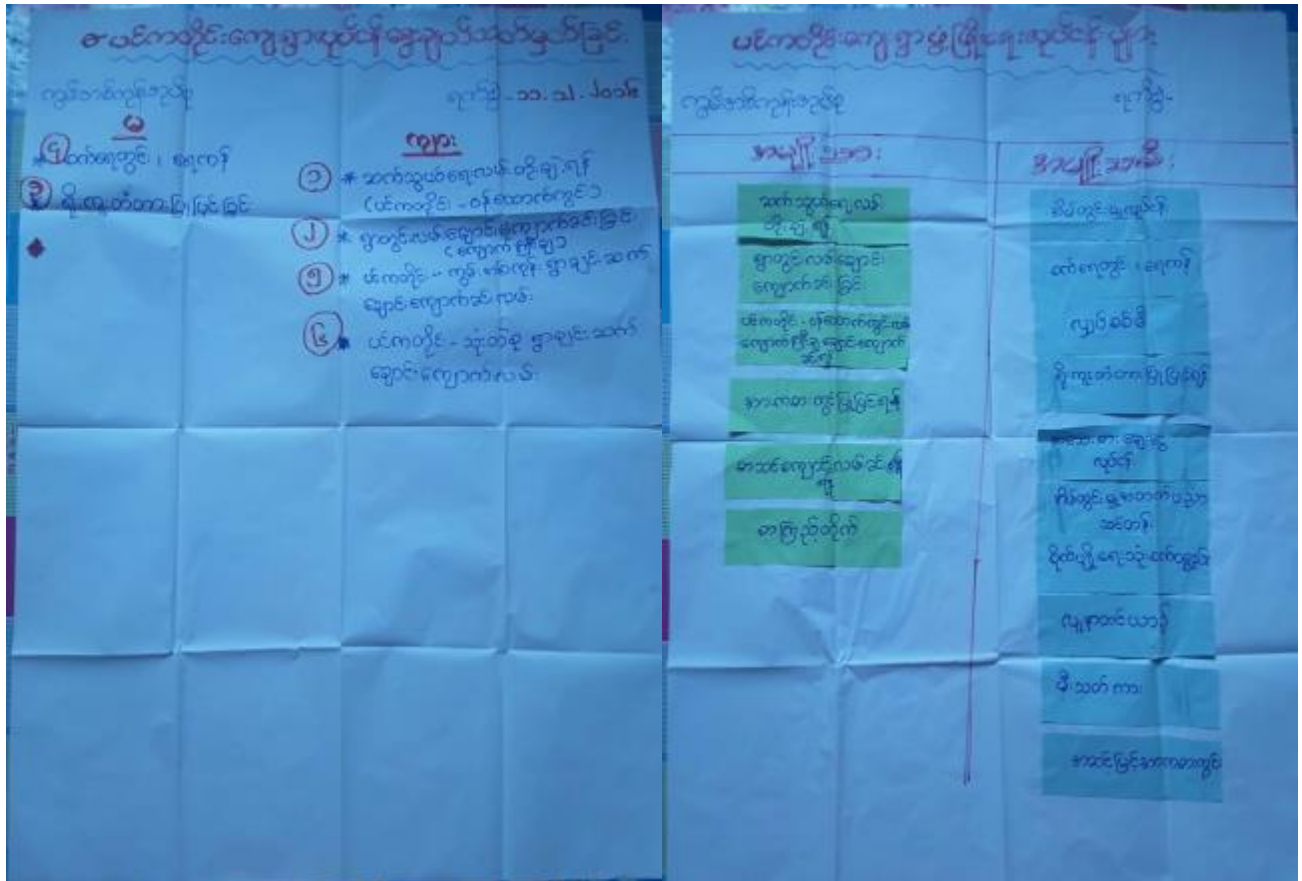 ပင်ကတိုင်းကျေးရွာလုပ်ငန်းရွေးချယ်သတ်မှတ်ခြင်း
ရက်စွဲ - ၁၁.၁၂.၂၀၁၆
မ
၄ * ဝက်ရေတွင်း ၊ ရေကန်
၃ * ရိုးကူးတံတားပြုပြင်ခြင်း
ကျား
၁ * ဆက်သွယ်ရေးလမ်းတိုးချဲ့ရန်
(ပင်ကတိုင်း - ဝန်ထောက်ကွင်း)
၂ * ရွာတွင်းလမ်းချောင်းကျောက်ခင်းခြင်း
(ကျောက်ကြီးချ)
၅ * ပင်ကတိုင်း - ရွာချင်းဆက်
ချောင်းကျောက်ခင်းလမ်း
၆ * ပင်ကတိုင်း - သုံးတံစု ရွာချင်းဆက်
ချောင်းကျောက်လမ်း
ပင်ကတိုင်းကျေးရွာဖွံ့ဖြိုးရေးလုပ်ငန်းများ
ရက်စွဲ -
အမျိုးသား
ဆက်သွယ်ရေးလမ်း
တိုးချဲ့ရန်
ရွာတွင်းလမ်းချောင်း
ကျောက်ခင်းခြင်း
ပင်ကတိုင်း - ဝန်ထောက်ကွင်းလမ်း
ကျောက်ကြီးချ ချောင်းကျောက်
ခင်းရန်
အားကစားကွင်းပြုပြင်ရန်
စာသင်ကျောင်းလမ်းခင်းရန်
စာကြည့်တိုက်
အမျိုးသမီး
အိမ်တွင်းမှုလုပ်ငန်း
ဝက်ရေတွင်း ၊ ရေကန်
လျှပ်စစ်မီး
ရိုးကူးတံတားပြုပြင်ရန်
အသေးစားချေးငွေ
လုပ်ငန်း
အိမ်တွင်းမှုအတတ်ပညာ
သင်တန်း
စိုက်ပျိုးရေးသုံးစက်ပစ္စည်း
လူနာတင်ယာဉ်
မီးသတ်ကား
အဆင့်မြင့်အားကစားကွင်း